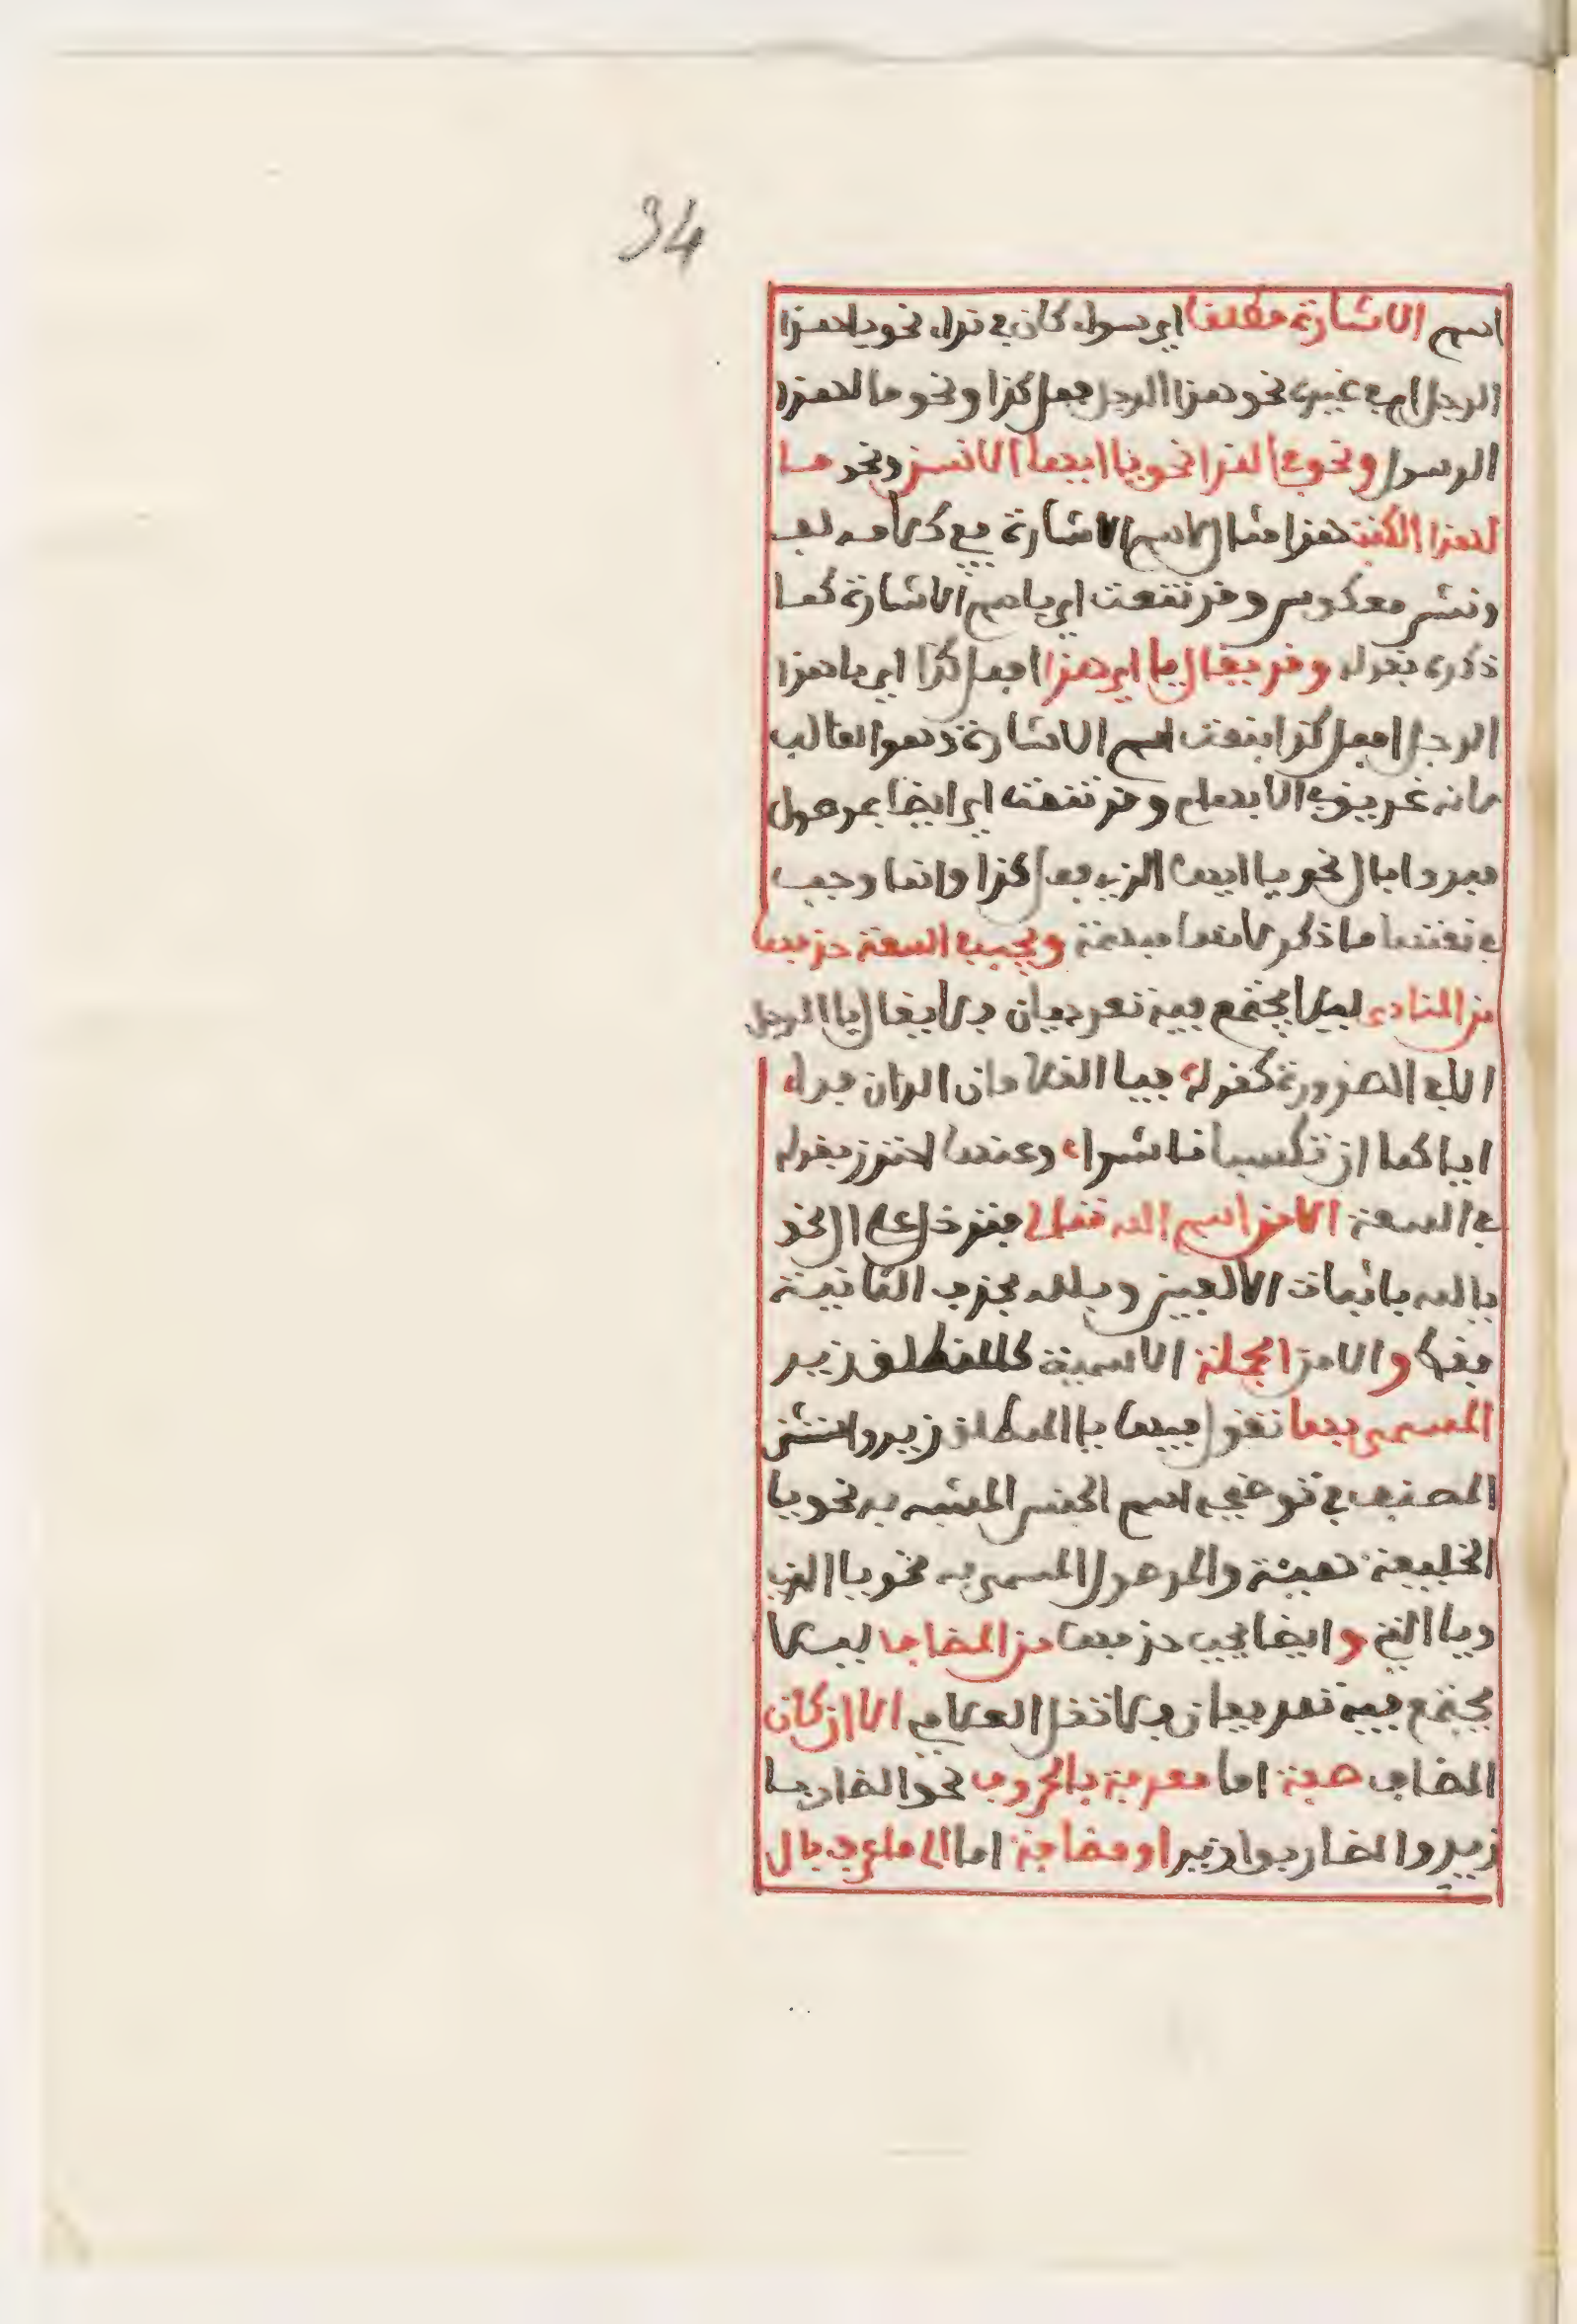 34
اسم الاشارة مطلقا اي سواء كان في نداء نحو يا هذا
الرجل ام في غيره نحو هذا الرجل فعل كذا ونحو ما لهذا
الرسول ونحو في هذا نحو يا ايها الانسن ونحو ما
لهذا الكتب هذا مثال لاسم الاشارة في كلامه لف
ونشر معكوس وقد تنعت اي باسم الاشارة كما
ذكره بقوله وقد يقال يا اي هذا افعل كذا اي يا هذا
الرجل افعل كذا بنعت اسم الاشارة وهو الغالب
الابهام وقد تنعت اي ايضا بموصول
مبدوا بال نحو يا ايها الذي فعل كذا وانما وجب
في نعتها ما ذكر لانها مبهمة ويجب في السعة حذفها
من المنادى ليلا يجتمع فيه تعريفان فلا يقال يا الرجل
الا في الضرورة كقوله فيا الغلامان اللذان فرا
اياكما ان تكسبانا شرا وعنها احترز بقوله
في السعة الا من اسم الله تعلى فتدخل على ال نحو
يا الله باثبات الالفين ويلله بحذف الثانية
فقط والا من الجملة الاسمية كالمنطلق زيد
المسمى بها تقول فيها يا المنطلق زيد واستثنى
المصنف في توضيحه اسم الجنس المشبه به نحو يا
الخليفة هيبة والموصول المسمى به نحو يا الذي
ويا التي وايضا يجب حذفها من المضاف ليلا
يجتمع فيه تعريفان فلا تقل الغلامي الا ان كان
المضاف صفة اما معربة بالحروف نحو الضاربا
زيد والضاربوا زيد او مضافة اما الى ما عرف بال